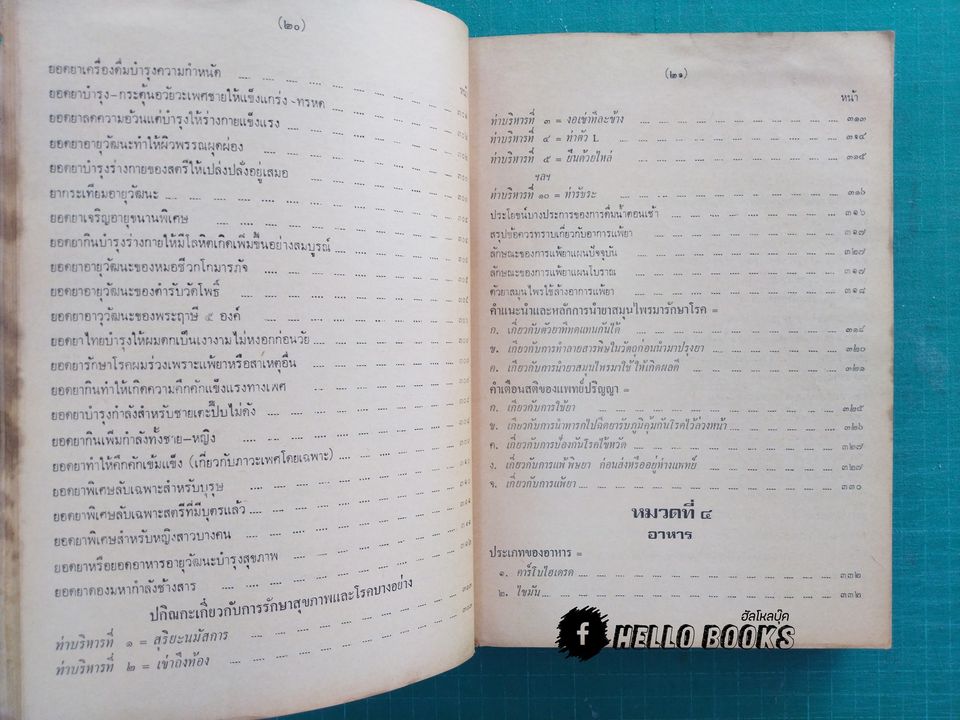 (๒๐)
หน้า
ยอดยาเครื่องดื่มบำรุงความกำหนัด
ยอดยาบำรุง-กระตุ้นอวัยวะเพศชายให้แข็งแกร่ง-ทรหด
ยอดยาลดความอ้วนแต่บำรุงให้ร่างกายแข็งแรง
ยอดยาอายุวัฒนะทำให้ผิวพรรณผุดผ่อง
ยอดยาบำรุงร่างกายของสตรีให้เปล่งปลั่งอยู่เสมอ
ยากระเทียมอายุวัฒนะ
ยอดยาเจริญอายุขนานพิเศษ
ยอดยากินบำรุงร่างกายให้มีโลหิตเกิดเพิ่มขึ้นอย่างสมบูรณ์
ยอดยาอายุวัฒนะของหมอชีวกโกมารภัจ
ยอดยาอายุวัฒนะของตำรับวัดโพธิ์
ยอดยาอาวุวัฒนะของพระฤาษี ๕ องค์
ยอดยาไทยบำรุงให้ผมดกเป็นเงางามไม่หงอกก่อนวัย
ยอดยารักษาโรคผมร่วงเพราะแพ้ยาหรือสาเหตุอื่น
ยอดยากินทำให้เกิดความคึกคักแข็งแรงทางเพศ
ยอดยาบำรุงกำลังสำหรับชายเตะปี๊บไม่ดัง
ยอดยากินเพิ่มกำลังทั้งชาย-หญิง
ยอดยาทำให้คึกคักเข้มแข็ง (เกี่ยวกับภาวะเพศโดยเฉพาะ)
ยอดยาพิเศษลับเฉพาะสำหรับบุรุษ
ยอดยาพิเศษลับเฉพาะสตรีที่มีบุตรแล้ว
ยอดยาพิเศษสำหรับหญิงสาวบางคน
ยอดยาหรือยอดอาหารอายุวัฒนะบำรุงสุขภาพ
ยอดยาดองมหากำลังช้างสาร
ปกิณกะเกี่ยวกับการรักษาสุขภาพและโรคบางอย่าง
ท่าบริหารที่ ๑ = สุริยะนมัสการ
ท่าบริหารที่ ๒ = เข่าถึงท้อง
(๒๑)
หน้า
ท่าบริหารที่ ๓ = งอเขาทีละข้าง ๓๑๓
ท่าบริหารที่ ๔ = ท่าตัว L ๓๑๔
ท่าบริหารที่ ๕ = ยืนด้วยไหล่ ๓๑๕
ฯลฯ
ท่าบริหารที่ ๑๐ = ท่ารับระ ๓๑๖
ประโยชน์บางประการของการดื่มน้ำตอนเช้า ๓๑๖
สรุปข้อควรทราบเกี่ยวกับอาการแพ้ยา ๓๑๗
ลักษณะของการแพ้ยาแผนปัจจุบัน ๓๒๗
ลักษณะของการแพ้ยาแผนโบราณ ๓๑๗
ตัวยาสมุนไพรใช้ล้างอาการแพ้ยา ๓๑๘
คำแนะนำและหลักการนำยาสมุนไพรมารักษาโรค =
ก. เกี่ยวกับตัวยาที่ทดแทนกันได้ ๓๑๘
ข. เกี่ยวกับการทำลายสารพิษในวัตถุก่อนนำมาปรุงยา ๓๒๐
ค. เกี่ยวกับการนำยาสมุนไพรมาใช้ให้เกิดผลดี ๓๒๑
คำเตือนสติของแพทย์ปริญญา =
ก. เกี่ยวกับการใช้ยา ๓๒๕
ข. เกี่ยวกับการนำทารกไปฉีดยารับภูมิคุ้มกันโรคไว้ล่วงหน้า ๓๒๖
ค. เกี่ยวกับการป้องกันโรคไข้หวัด ๓๒๗
ง. เกี่ยวกับการแพ้พิษยา ก่อนส่งหรืออยู่ห่างแพทย์ ๓๒๗
จ. เกี่ยวกับการแพ้ยา ๓๓๐
หมวดที่ ๔
อาหาร
ประเภทของอาหาร =
๑. คาร์โบไฮเดรต ๓๓๒
๒. ไขมัน ๓๓๒
ฮัลโหลบุ๊ค
f HELLO BOOKS